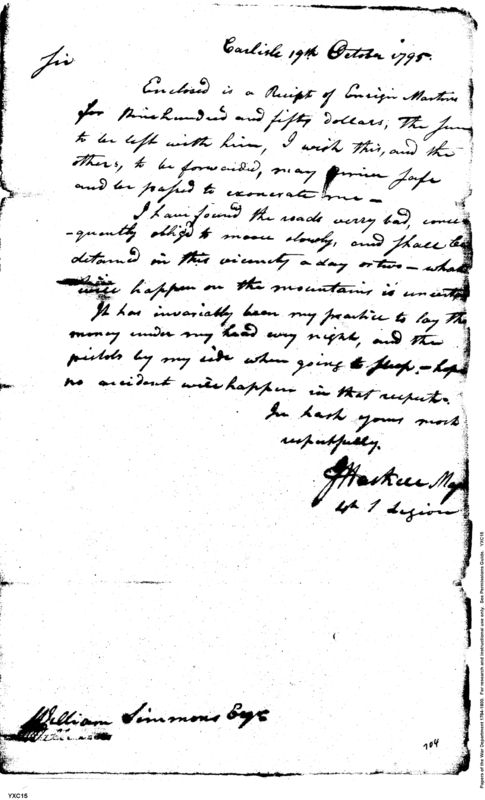 Carlisle 19th October 1795.
Sir
Enclosed is a Recipt of Ensign Martins
for Nine hundred and fifty dollars, the sum
to be left with him, I wish this, and the
others, to be forwarded, may arrive safe
and be passed to exonerate me —
I have found the roads verry bad, conse
-quently obliged to moove slowly, and shall be
detained in this vicinety a day or two — what
will happen on the mountains is uncertain
It has invariably been my practice to lay the
money under my head evry night, and the
pistols by my side when going to sleep, — hope
no accident will happen in that respect.
In hast yours most
respectfully.
J Haskell Maj
4th S Legion
William Simmons Esqr
704
YXC15
Papers of the War Department 1784-1800. For research and instructional use only. See Permissions Guide. YXC15